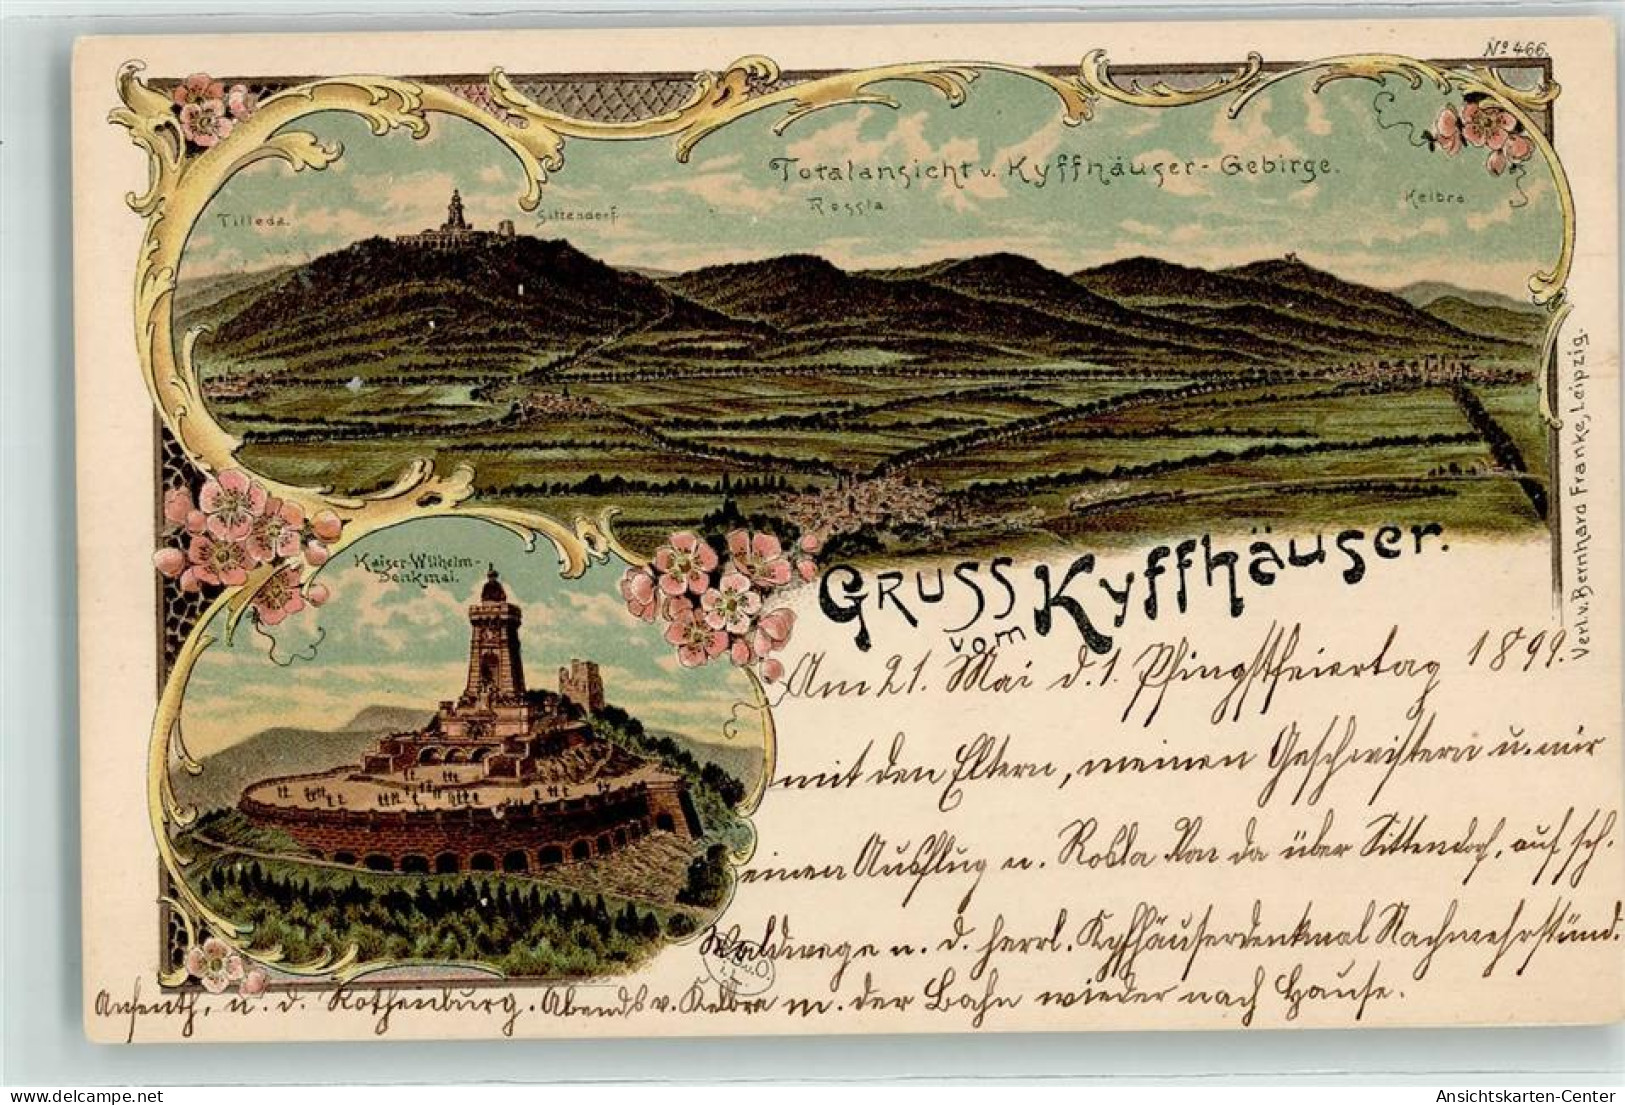 No 466.
Totalansicht v. Kyffhäuser-Gebirge.
Tilleda.
Sittendorf.
Rossla
Kelbra
Kaiser-Wilhelm-
Denkmal.
GRUSS vom Kyffhäuser.
Verl. v. Bernhard Franke, Leipzig.
Am 21. Mai d. 1. Pfingstfeiertag 1899.
mit den Eltern, meinen Geschwistern u. mir
einen Ausflug n. Rosla. Von da über Sittendorf, auf sch.
Waldwege n. d. herrl. Kyffhäuserdenkmal Nachmehrstünd.
Aufenth. n. d. Rothenburg. Abends v. Kelbra m. der Bahn wieder nach Hause.
Ansichtskarten-Center